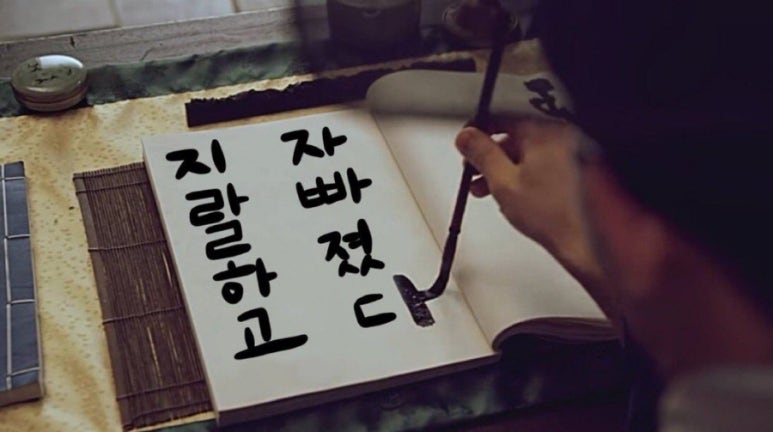 지랄하고
자빠졌ㄷ